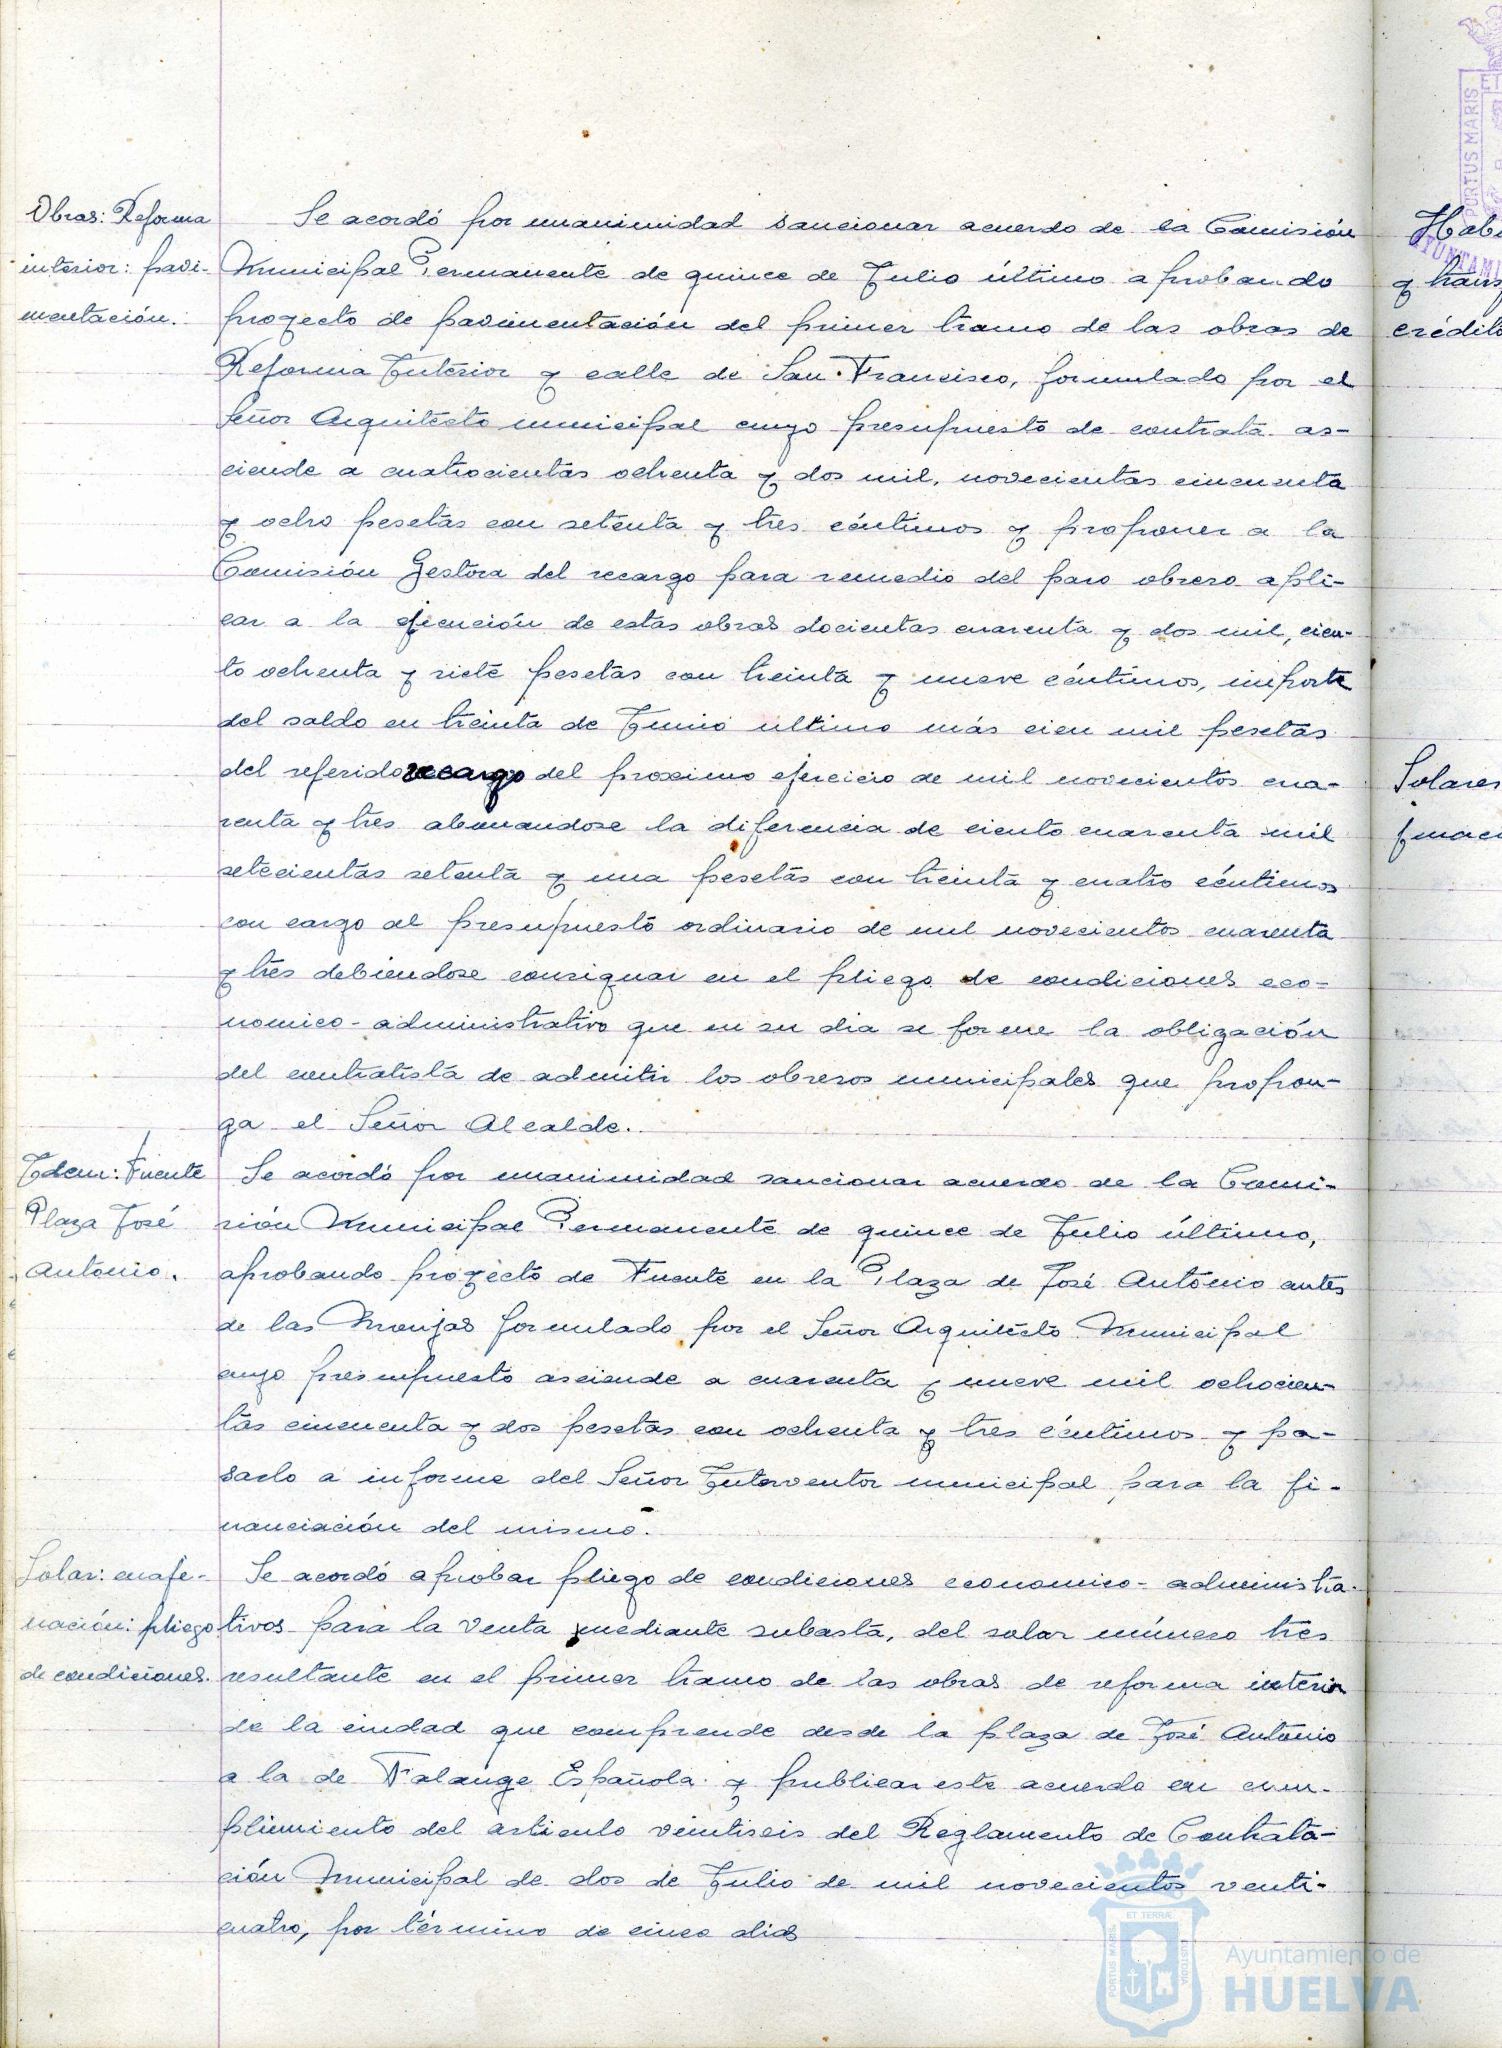 Obras: Reforma
interior: pavi-
mentación.
Se acordó por unanimidad sancionar acuerdo de la Comisión
Municipal Permanente de quince de Julio último aprobando
proyecto de pavimentación del primer tramo de las obras de
Reforma Interior y calle de San Francisco, formulado por el
Señor Arquitecto municipal cuyo presupuesto de contrata as-
ciende a cuatrocientas ochenta y dos mil, novecientas cincuenta
y ocho pesetas con setenta y tres céntimos y proponer a la
Comisión Gestora del recargo para remedio del paro obrero apli-
car a la ejecución de estas obras docientas cuarenta y dos mil, cien-
to ochenta y siete pesetas con treinta y nueve céntimos, importe
del saldo en treinta de Junio ultimo más cien mil pesetas
del referido recargo del proximo ejercicio de mil novecientos cua-
renta y tres abonandose la diferencia de ciento cuarenta mil
setecientas setenta y una pesetas con treinta y cuatro céntimos
con cargo al presupuesto ordinario de mil novecientos cuarenta
y tres debiendose consignar en el pliego de condiciones eco-
nomico-administrativo que en su dia se forme la obligación
del contratista de admitir los obreros municipales que propon-
ga el Señor Alcalde.
Idem: Fuente
Plaza José
Antonio.
Se acordó por unanimidad sancionar acuerdo de la Comi-
sión Municipal Permanente de quince de Julio último,
aprobando proyecto de Fuente en la Plaza de José Antonio antes
de las Monjas formulado por el Señor Arquitecto Municipal
cuyo presupuesto asciende a cuarenta y nueve mil ochocien-
tas cincuenta y dos pesetas con ochenta y tres céntimos y pa-
sarlo a informe del Señor Interventor municipal para la fi-
nanciación del mismo.
Solar: enaje-
nación: pliego
de condiciones.
Se acordó aprobar pliego de condiciones economico-administra-
tivos para la venta mediante subasta, del solar número tres
resultante en el primer tramo de las obras de reforma interior
de la ciudad que comprende desde la plaza de José Antonio
a la de Falange Española y publicar este acuerdo en cum-
plimiento del articulo veintiseis del Reglamento de Contrata-
ción Municipal de dos de Julio de mil novecientos venti-
cuatro, por término de cinco dias
PORTUS MARIS
crédito
Solares
ET TERRÆ
PORTUS MARIS
CUSTODIA
Ayuntamiento de
HUELVA